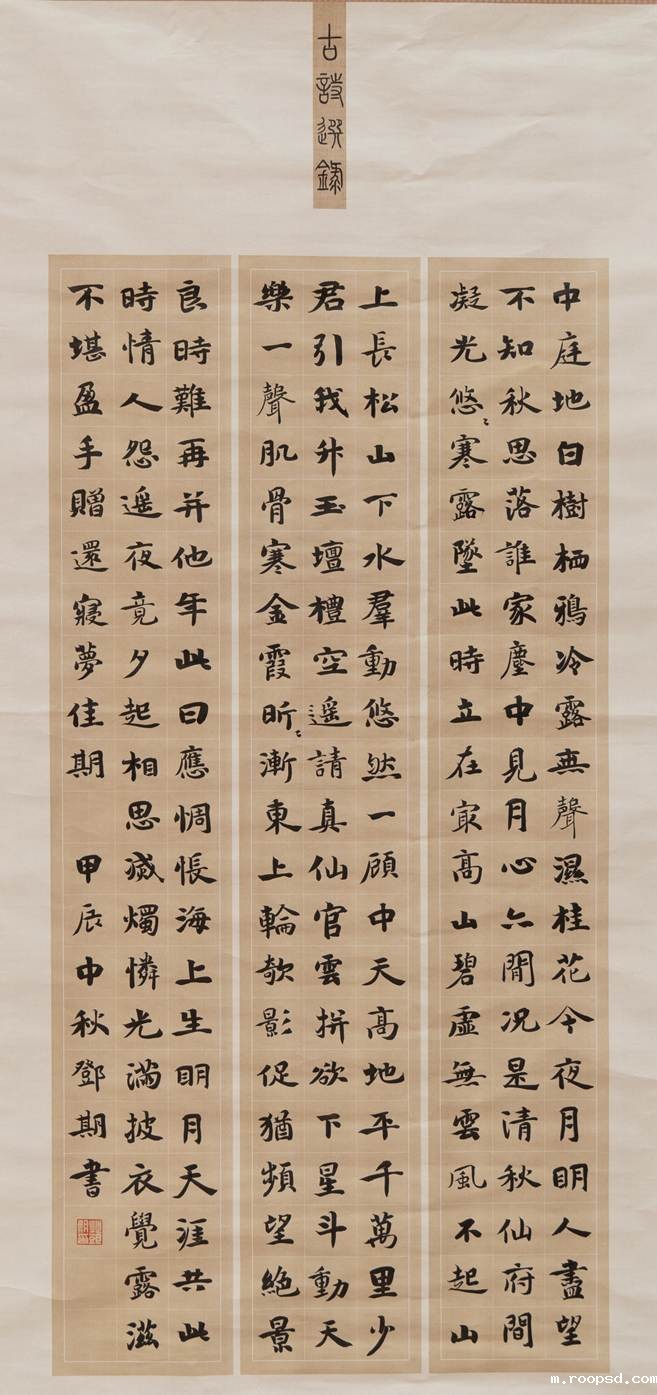 古詩選錄
中庭地白樹栖鴉冷露無聲濕桂花今夜月明人盡望
不知秋思落誰家塵中見月心亦閒況是清秋仙府間
凝光悠〻寒露墜此時立在冣高山碧虛無雲風不起山
上長松山下水羣動悠然一顧中天高地平千萬里少
君引我升玉壇禮空遙請真仙官雲拼欲下星斗動天
樂一聲肌骨寒金霞昕〻漸東上輪欹影促猶頻望絕景
良時難再并他年此日應惆悵海上生明月天涯共此
時情人怨遙夜竟夕起相思滅燭憐光滿披衣覺露滋
不堪盈手贈還寢夢佳期 甲辰中秋鄧期書
m.roopsd.com